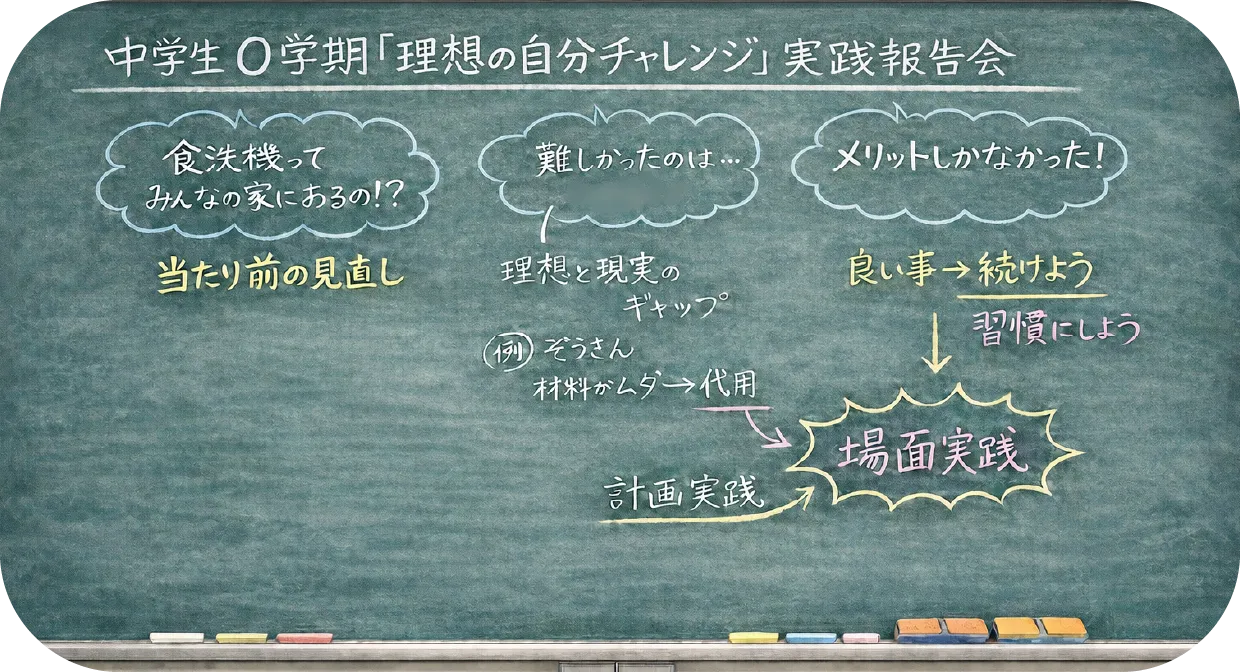 中学生0学期「理想の自分チャレンジ」実践報告会
食洗機って
みんなの家にあるの!?
当たり前の見直し
難しかったのは…
理想と現実の
ギャップ
例 ぞうさん
材料がムダ→代用
計画実践
メリットしかなかった!
良い事→続けよう
習慣にしよう
場面実践